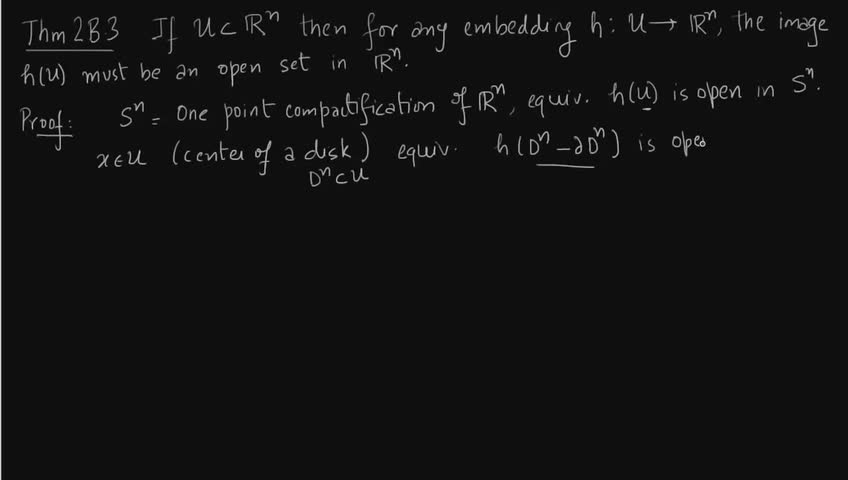 Thm 2B.3 If U ⊂ ℝⁿ then for any embedding h: U → ℝⁿ, the image
h(U) must be an open set in ℝⁿ.
Proof: Sⁿ = One point compactification of ℝⁿ, equiv. h(U) is open in Sⁿ.
x∈U (center of a disk) equiv. h(Dⁿ − ∂Dⁿ) is ope
Dⁿ⊂U